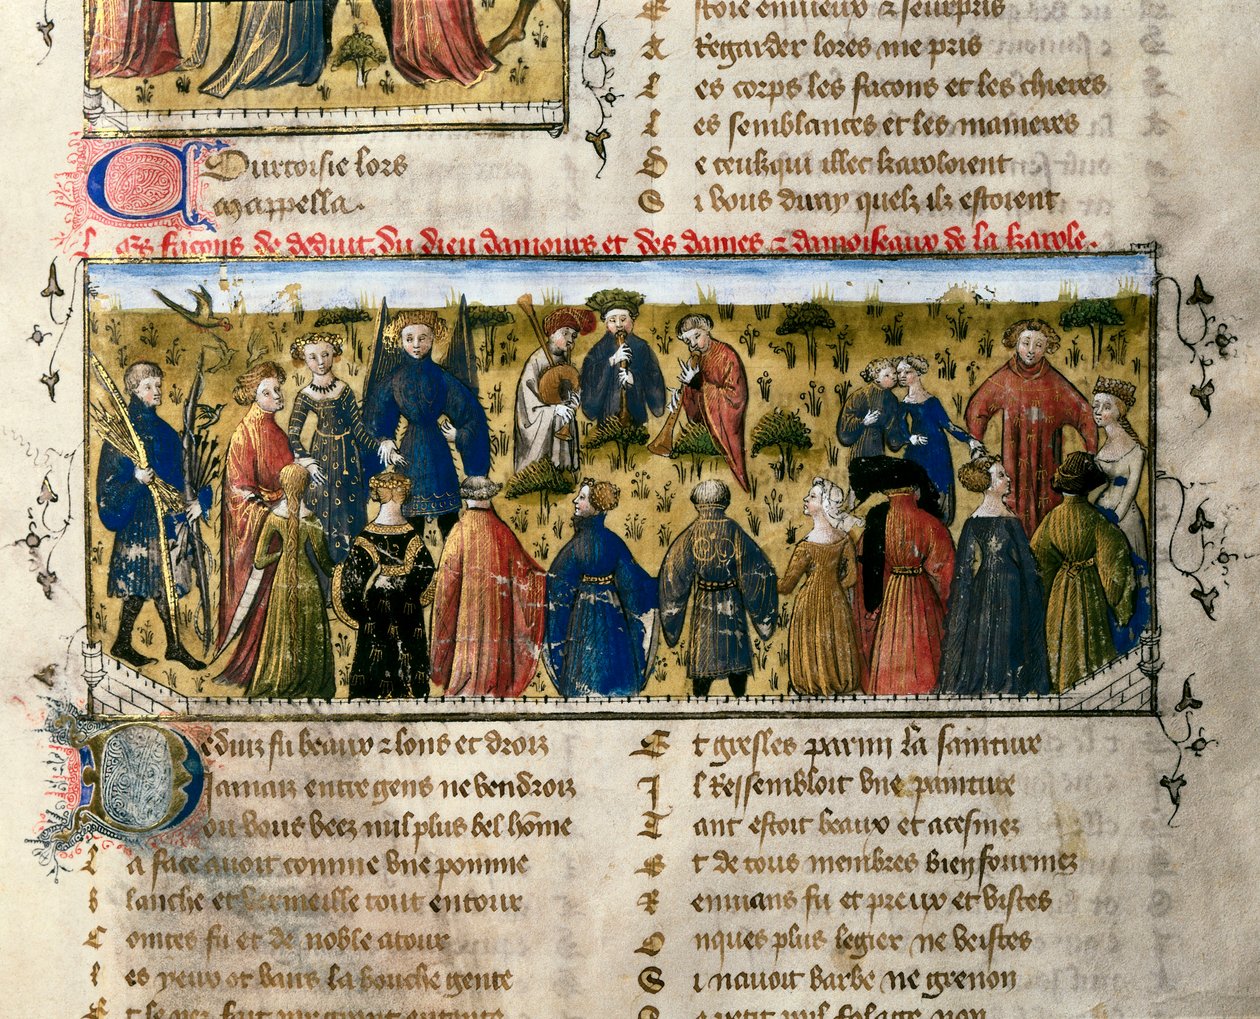 Curtoisie lors
Mappella.
Estoie enuieux & seurpris
A Regarder lores me pris
Les corps les facons et les chieres
Les semblances et les manieres
De ceulz qui illec karoloient
Si vous diray quelz ilz estoient
Les facons de deduit du dieu damours et des dames & damoiseaux de la karole.
Deduiz fu beaux & lons et droiz
Jamaiz entre gens ne vendroiz
Ou vous veez nul plus bel home
La face auoit comme vne pomme
Blanche et vermeille tout entour
Cointes fu et de noble atour
Les yeux ot vairs la bouche gente
Et le nez fait
Et gresles parmi la sainture
Il Ressembloit vne painture
Tant estoit beaux et acesmez
Et de tous membres bien fourmez
Remuans fu et preux et vistes
Onques plus legier ne veistes
Si nauoit barbe ne grenon
Se petit poil folage non